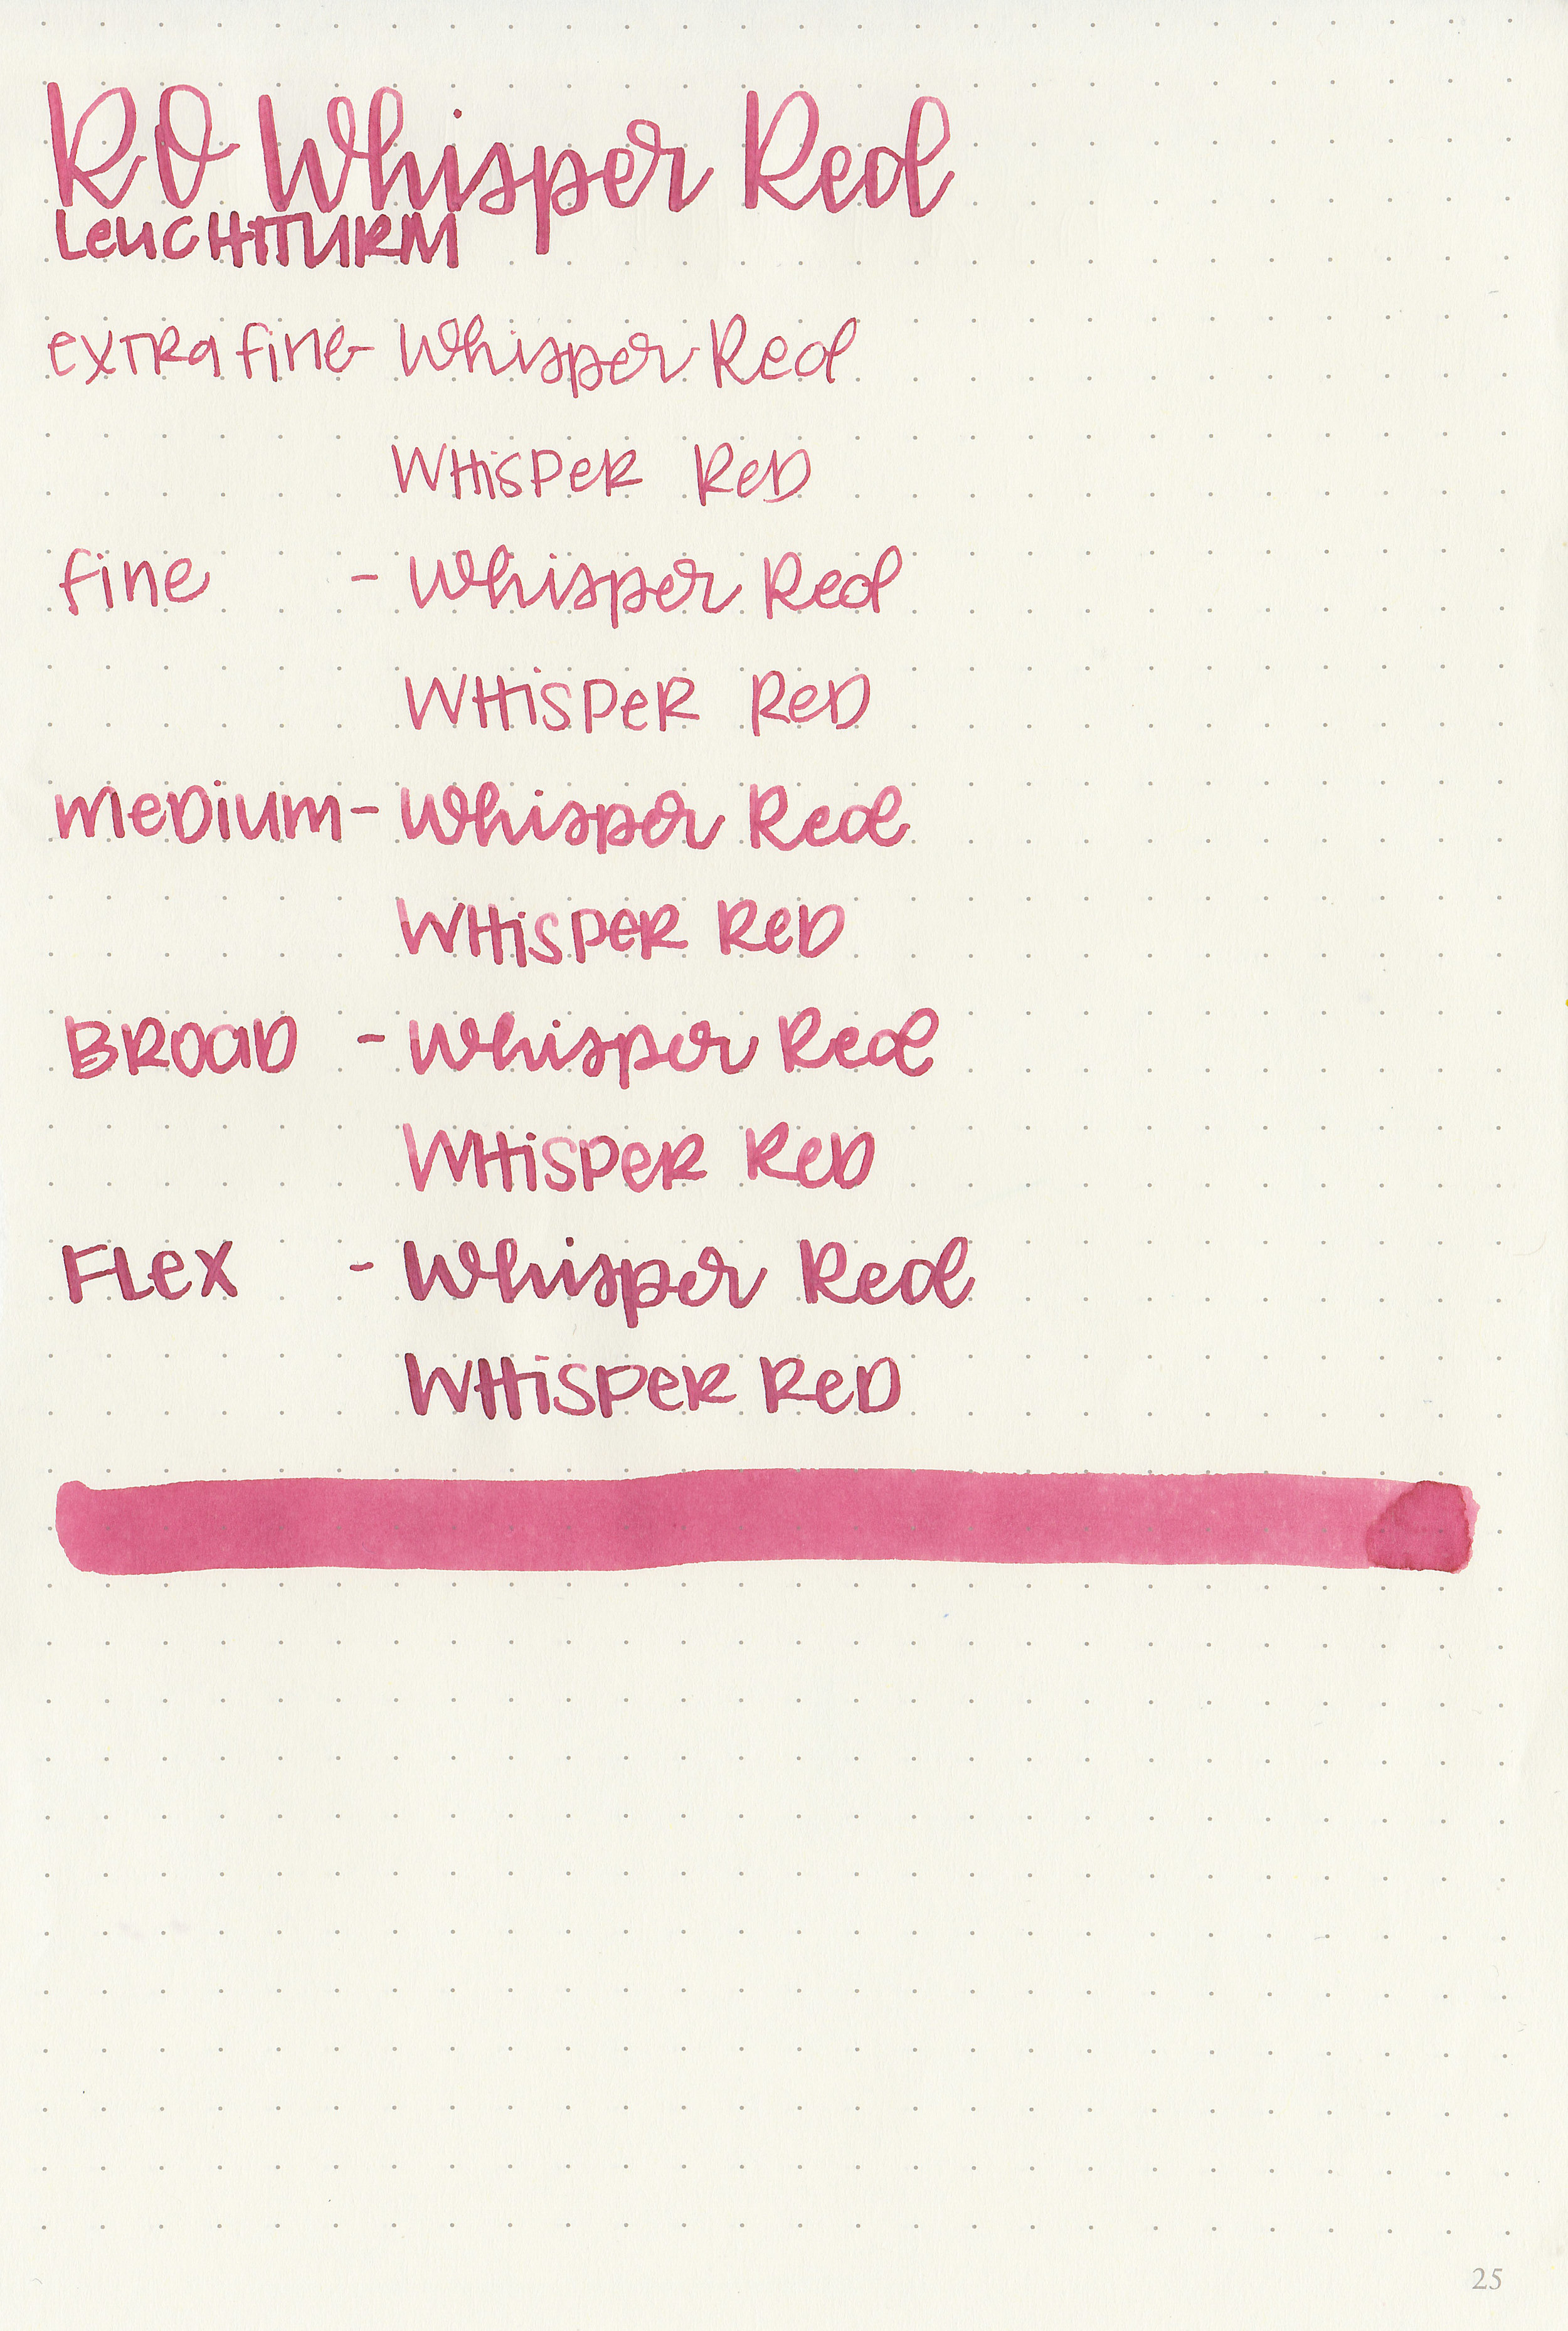 RO Whisper Red
LeUCHTTURM
exTRa fine - Whisper Red
WHisPeR ReD
fine - Whisper Red
WHisPeR ReD
meDium - Whisper Red
WHisPeR ReD
BROaD - Whisper Red
WHisPeR ReD
FLex - Whisper Red
WHisPeR ReD
25